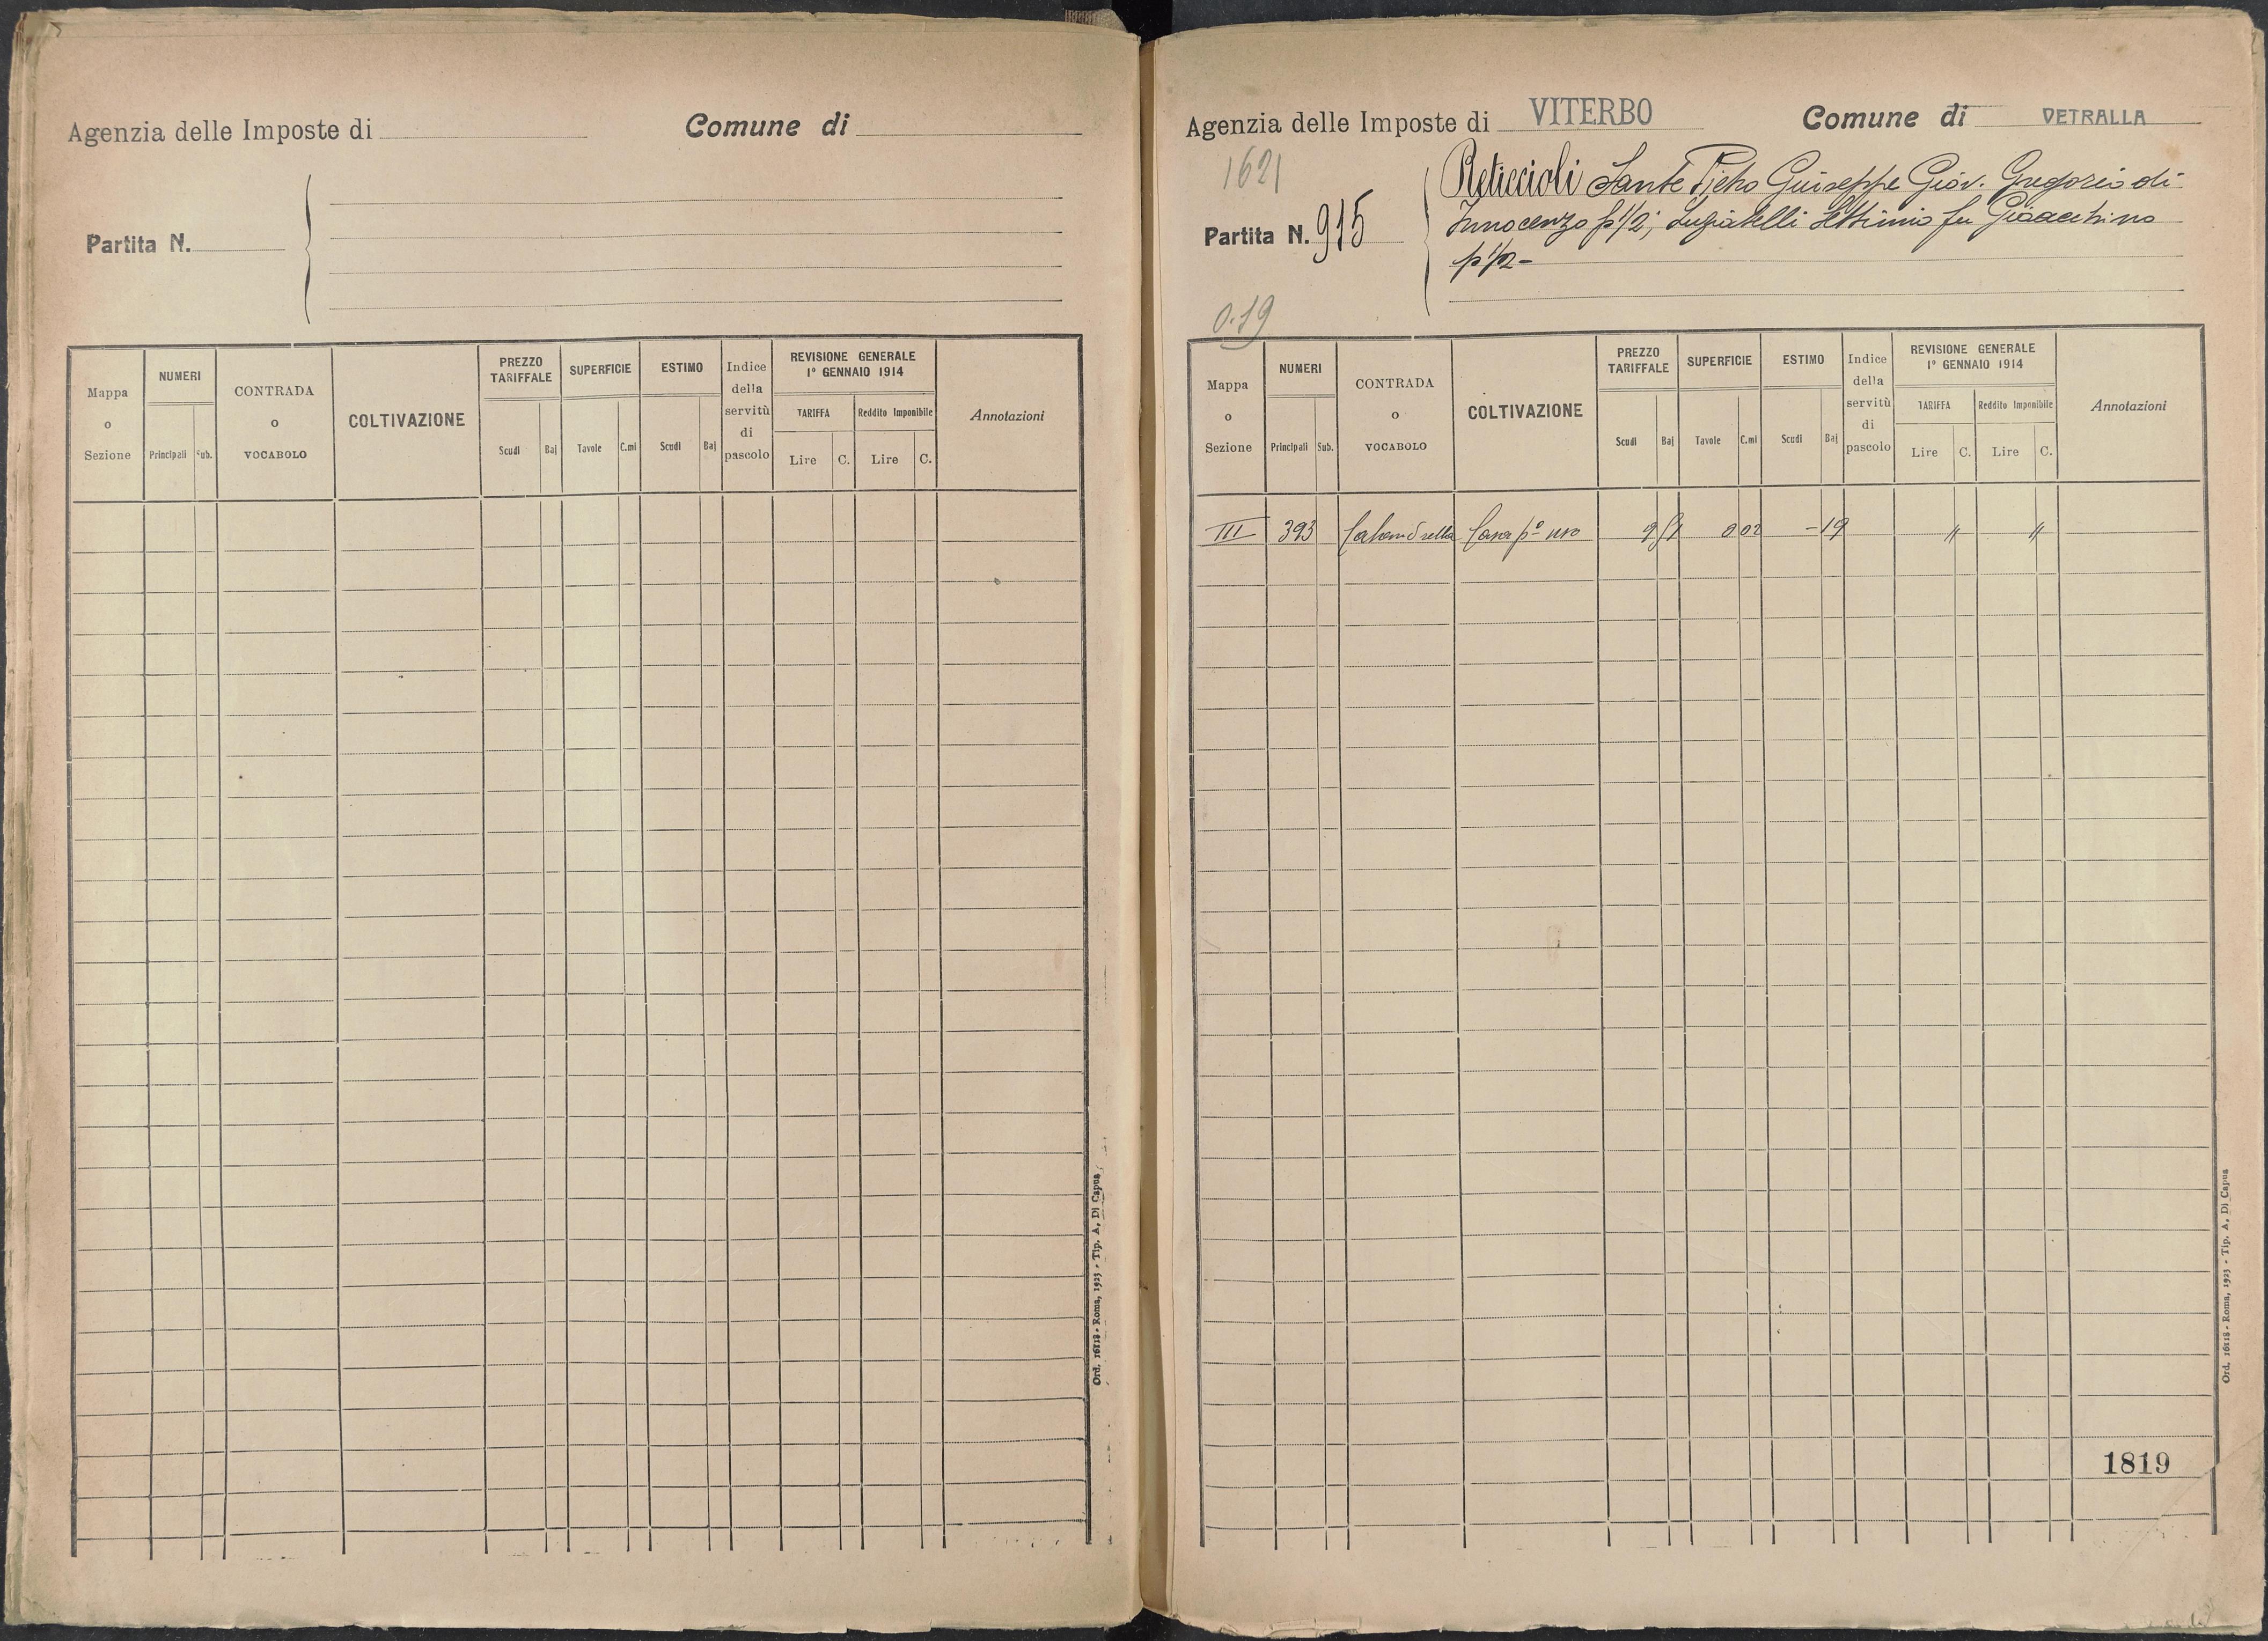 Agenzia delle Imposte di
Comune di
Partita N.
Mappa o Sezione
NUMERI
Principali
Sub.
CONTRADA o VOCABOLO
COLTIVAZIONE
PREZZO TARIFFALE
Scudi
Baj
SUPERFICIE
Tavole
C.mi
ESTIMO
Scudi
Baj
Indice della servitù di pascolo
REVISIONE GENERALE
1° GENNAIO 1914
TARIFFA
Lire
C.
Reddito Imponibile
Lire
C.
Annotazioni
Ord. 16118 - Roma, 1923 - Tip. A. Di Capua
Agenzia delle Imposte di VITERBO
Comune di VETRALLA
1621
Partita N. 915
Reticcioli Sante Pietro Giuseppe Giov. Gregorio di
Innocenzo p 1/2; Luziatelli Settimio fu Gioacchino
p 1/2 -
0.19
Mappa o Sezione
NUMERI
Principali
Sub.
CONTRADA o VOCABOLO
COLTIVAZIONE
PREZZO TARIFFALE
Scudi
Baj
SUPERFICIE
Tavole
C.mi
ESTIMO
Scudi
Baj
Indice della servitù di pascolo
REVISIONE GENERALE
1° GENNAIO 1914
TARIFFA
Lire
C.
Reddito Imponibile
Lire
C.
Annotazioni
III 393 Calandrella Casa p° uso 002 -19 " "
1819
Ord. 16118 - Roma, 1923 - Tip. A. Di Capua